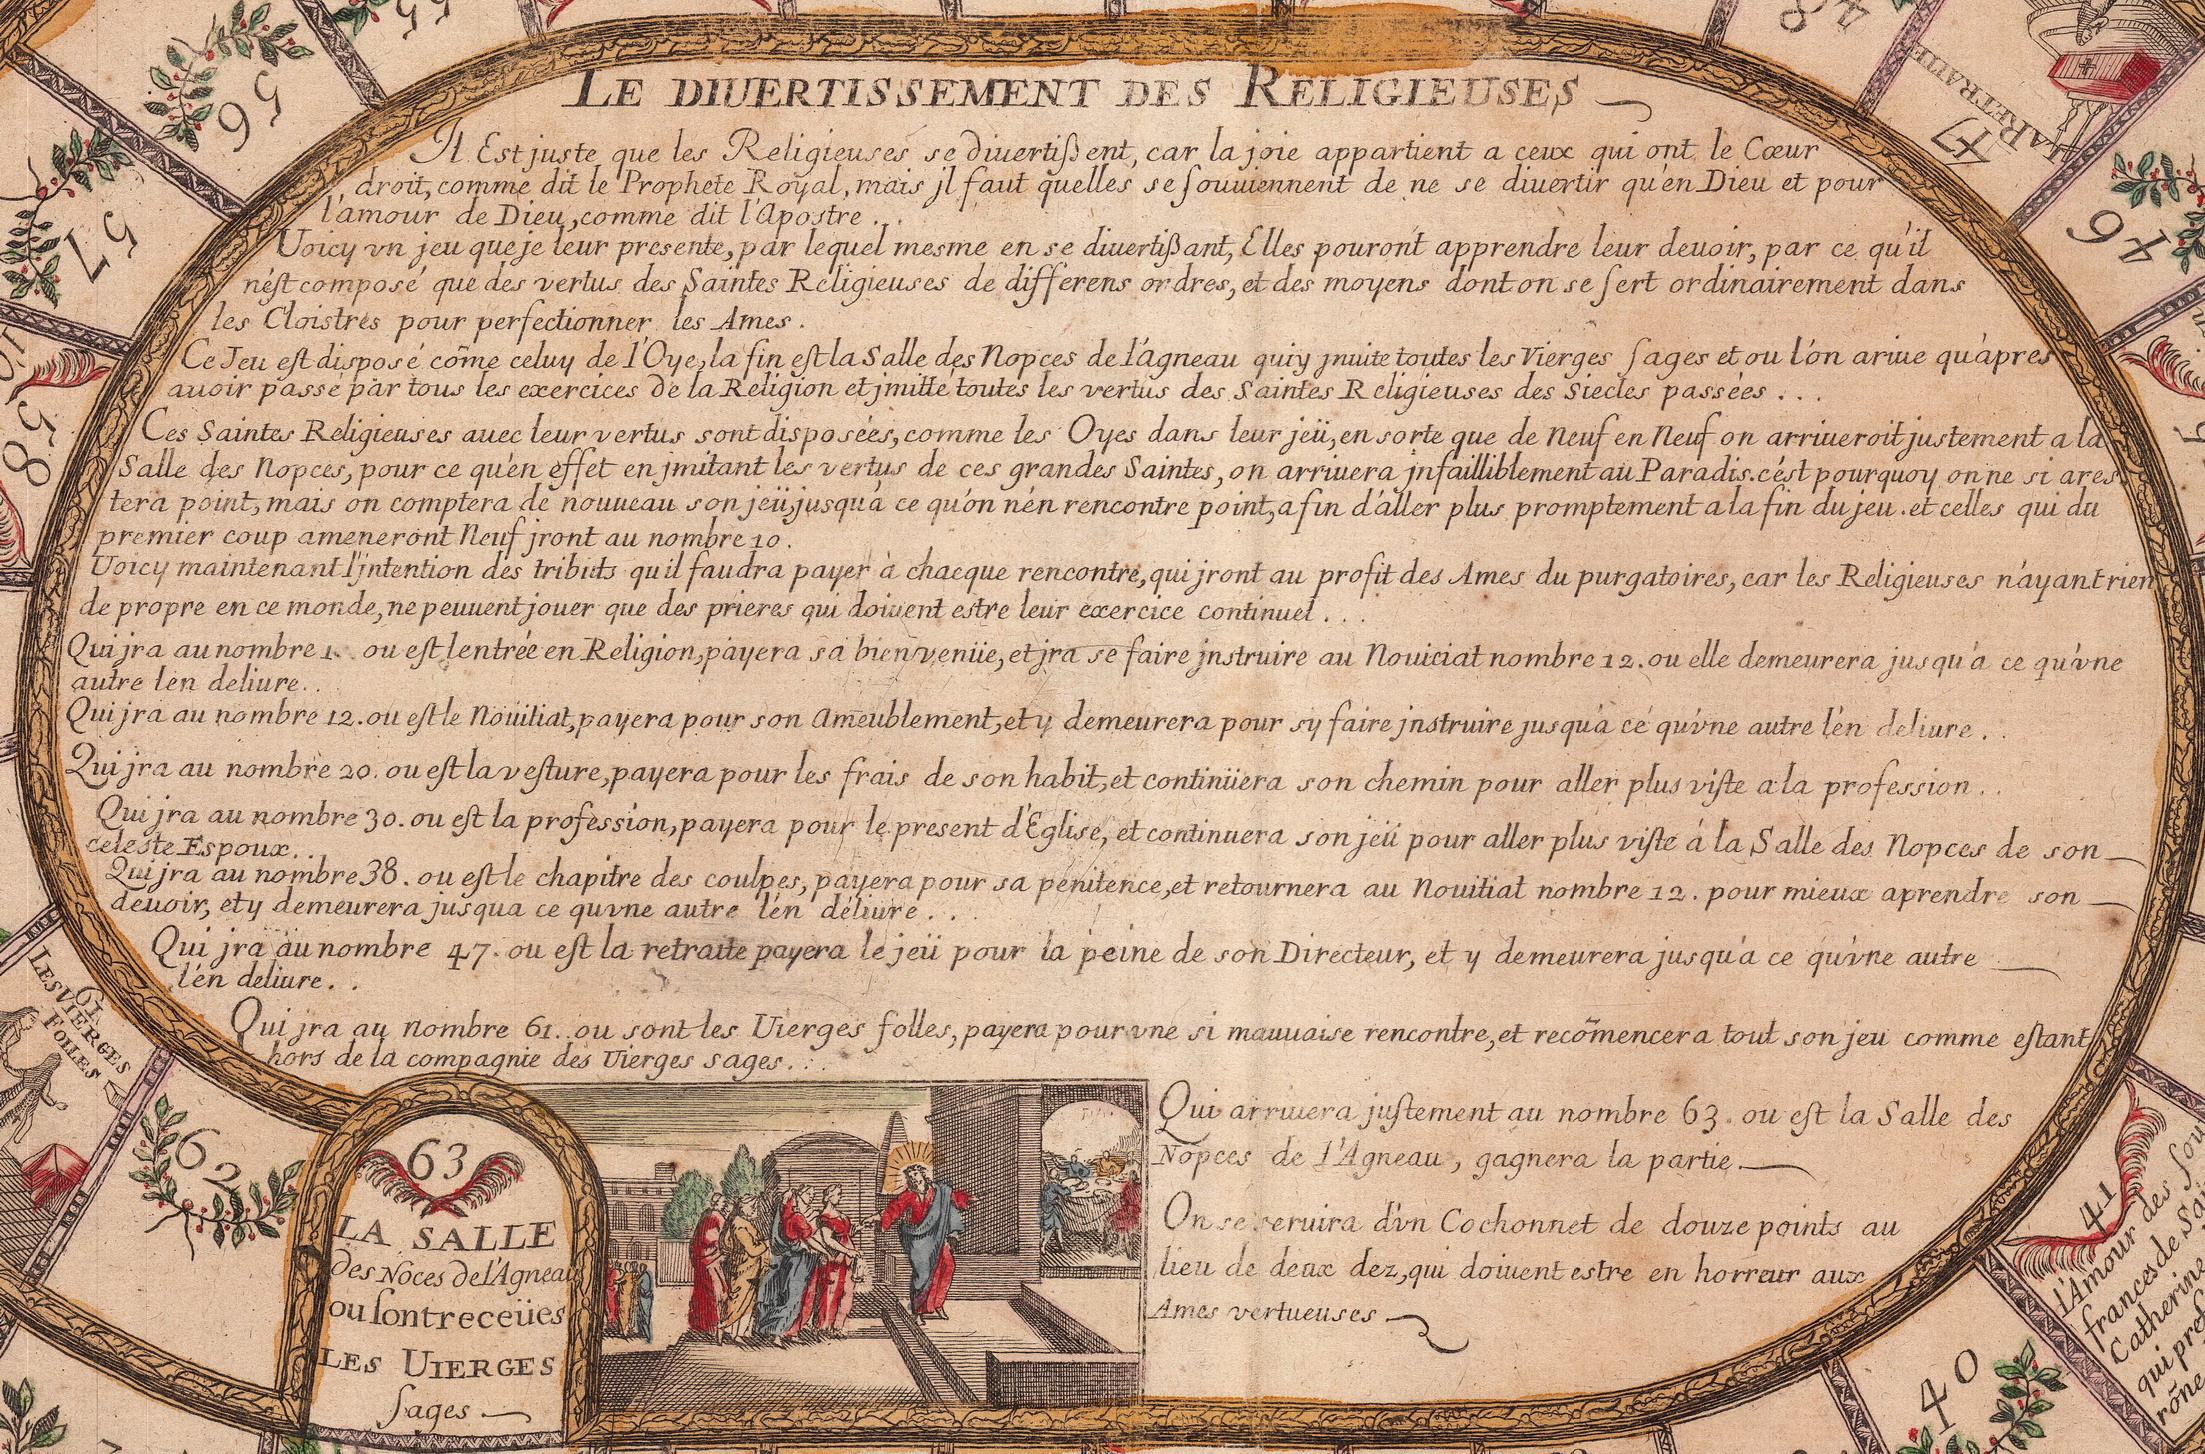 LE DIUERTISSEMENT DES RELIGIEUSES
Il Est juste que les Religieuses se diuertißent, car la joie appartient a ceux qui ont le Cœur
droit, comme dit le Prophete Royal, mais jl faut quelles se souuiennent de ne se diuertir qu'en Dieu et pour
l'amour de Dieu, comme dit l'Apostre . . .
Uoicy vn jeu que je leur presente, par lequel mesme en se diuertißant, Elles pouront apprendre leur deuoir, par ce qu'il
n'ést composé que des vertus des Saintes Religieuses de differens ordres, et des moyens dont on se sert ordinairement dans
les Cloistres pour perfectionner les Ames .
Ce Jeu est disposé cõme celuy de l'Oye, la fin est la Salle des Nopces de l'agneau qui y jnuite toutes les Vierges sages et ou l'on ariue qu'apres
auoir passé par tous les exercices de la Religion et jmitté toutes les vertus des Saintes Religieuses des Siecles passées . . .
Ces Saintes Religieuses auec leur vertus sont disposées, comme les Oyes dans leur jeü, en sorte que de Neuf en Neuf on arriueroit justement a la
Salle des Nopces, pour ce qu'en effet en jmitant les vertus de ces grandes Saintes, on arriuera jnfailliblement au Paradis. c'ést pourquoy on ne si ares
tera point, mais on comptera de nouueau son jeü, jusqu'a ce qu'on n'én rencontre point, afin d'aller plus promptement a la fin du jeu . et celles qui du
premier coup ameneront Neuf jront au nombre 10 .
Uoicy maintenant l'jntention des tributs qu il faudra payer à chacque rencontre, qui jront au profit des Ames du purgatoires, car les Religieuses n'ayant rien
de propre en ce monde, ne peuuent jouer que des prieres qui doiuent estre leur exercice continuel . . .
Qui jra au nombre 1. ou est lentrée en Religion, payera sa bien veniie, et jra se faire jnstruire au Nouiciat nombre 12. ou elle demeurera jusqu'a ce qu'vne
autre lén deliure . .
Qui jra au nombre 12. ou est le Nouitiat, payera pour son Ameublement, et y demeurera pour sy faire jnstruire jusqu'a ce qu'vne autre l'én deliure . .
Qui jra au nombre 20. ou est la vesture, payera pour les frais de son habit, et continüera son chemin pour aller plus viste a la profession . .
Qui jra au nombre 30. ou est la profession, payera pour le present d'Eglise, et continuera son jeü pour aller plus viste á la Salle des Nopces de son
celeste Espoux . .
Qui jra au nombre 38 . ou est le chapitre des coulpes, payera pour sa penitence, et retournera au Nouitiat nombre 12 . pour mieux aprendre son
deuoir, et y demeurera jusqua ce quvne autre l'én déliure . . .
Qui jra au nombre 47. ou est la retraite payera le jeü pour la peine de son Directeur, et y demeurera jusqu'a ce qu'vne autre
l'én deliure . .
Qui jra au nombre 61. ou sont les Uierges folles, payera pour vne si mauuaise rencontre, et recõmencera tout son jeu comme estant
hors de la compagnie des Uierges sages . . .
Qui arriuera justement au nombre 63 . ou est la Salle des
Nopces de l'Agneau, gagnera la partie
On se seruira d'vn Cochonnet de douze points au
lieu de deux dez, qui doiuent estre en horreur aux
Ames vertueuses
63
LA SALLE
des Noces de l'Agneau
ou sont receües
LES UIERGES
sages
62
61
LES VIERGES
FOLLES
58
57
56
55
48
47
LA RETRAITE
46
41
l'Amour des
frances de
Catherine
qui
40